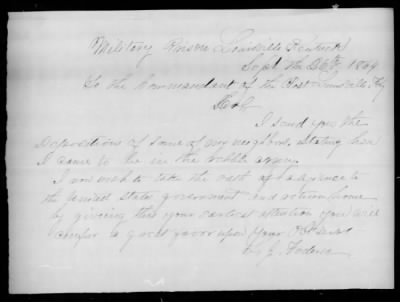 Military Prison Louisville Kentucky
Sept the 26th 1864
To the Commandant of the Post Louisville Ky
I send you the
Depositions of some of my neighbors, stating how
I came to be in the rebble army.
I now wish to take the oath of allegiance to
the united states government and return home
by giveing this your earliest attention you will
confer a great favor upon your Obt
J.